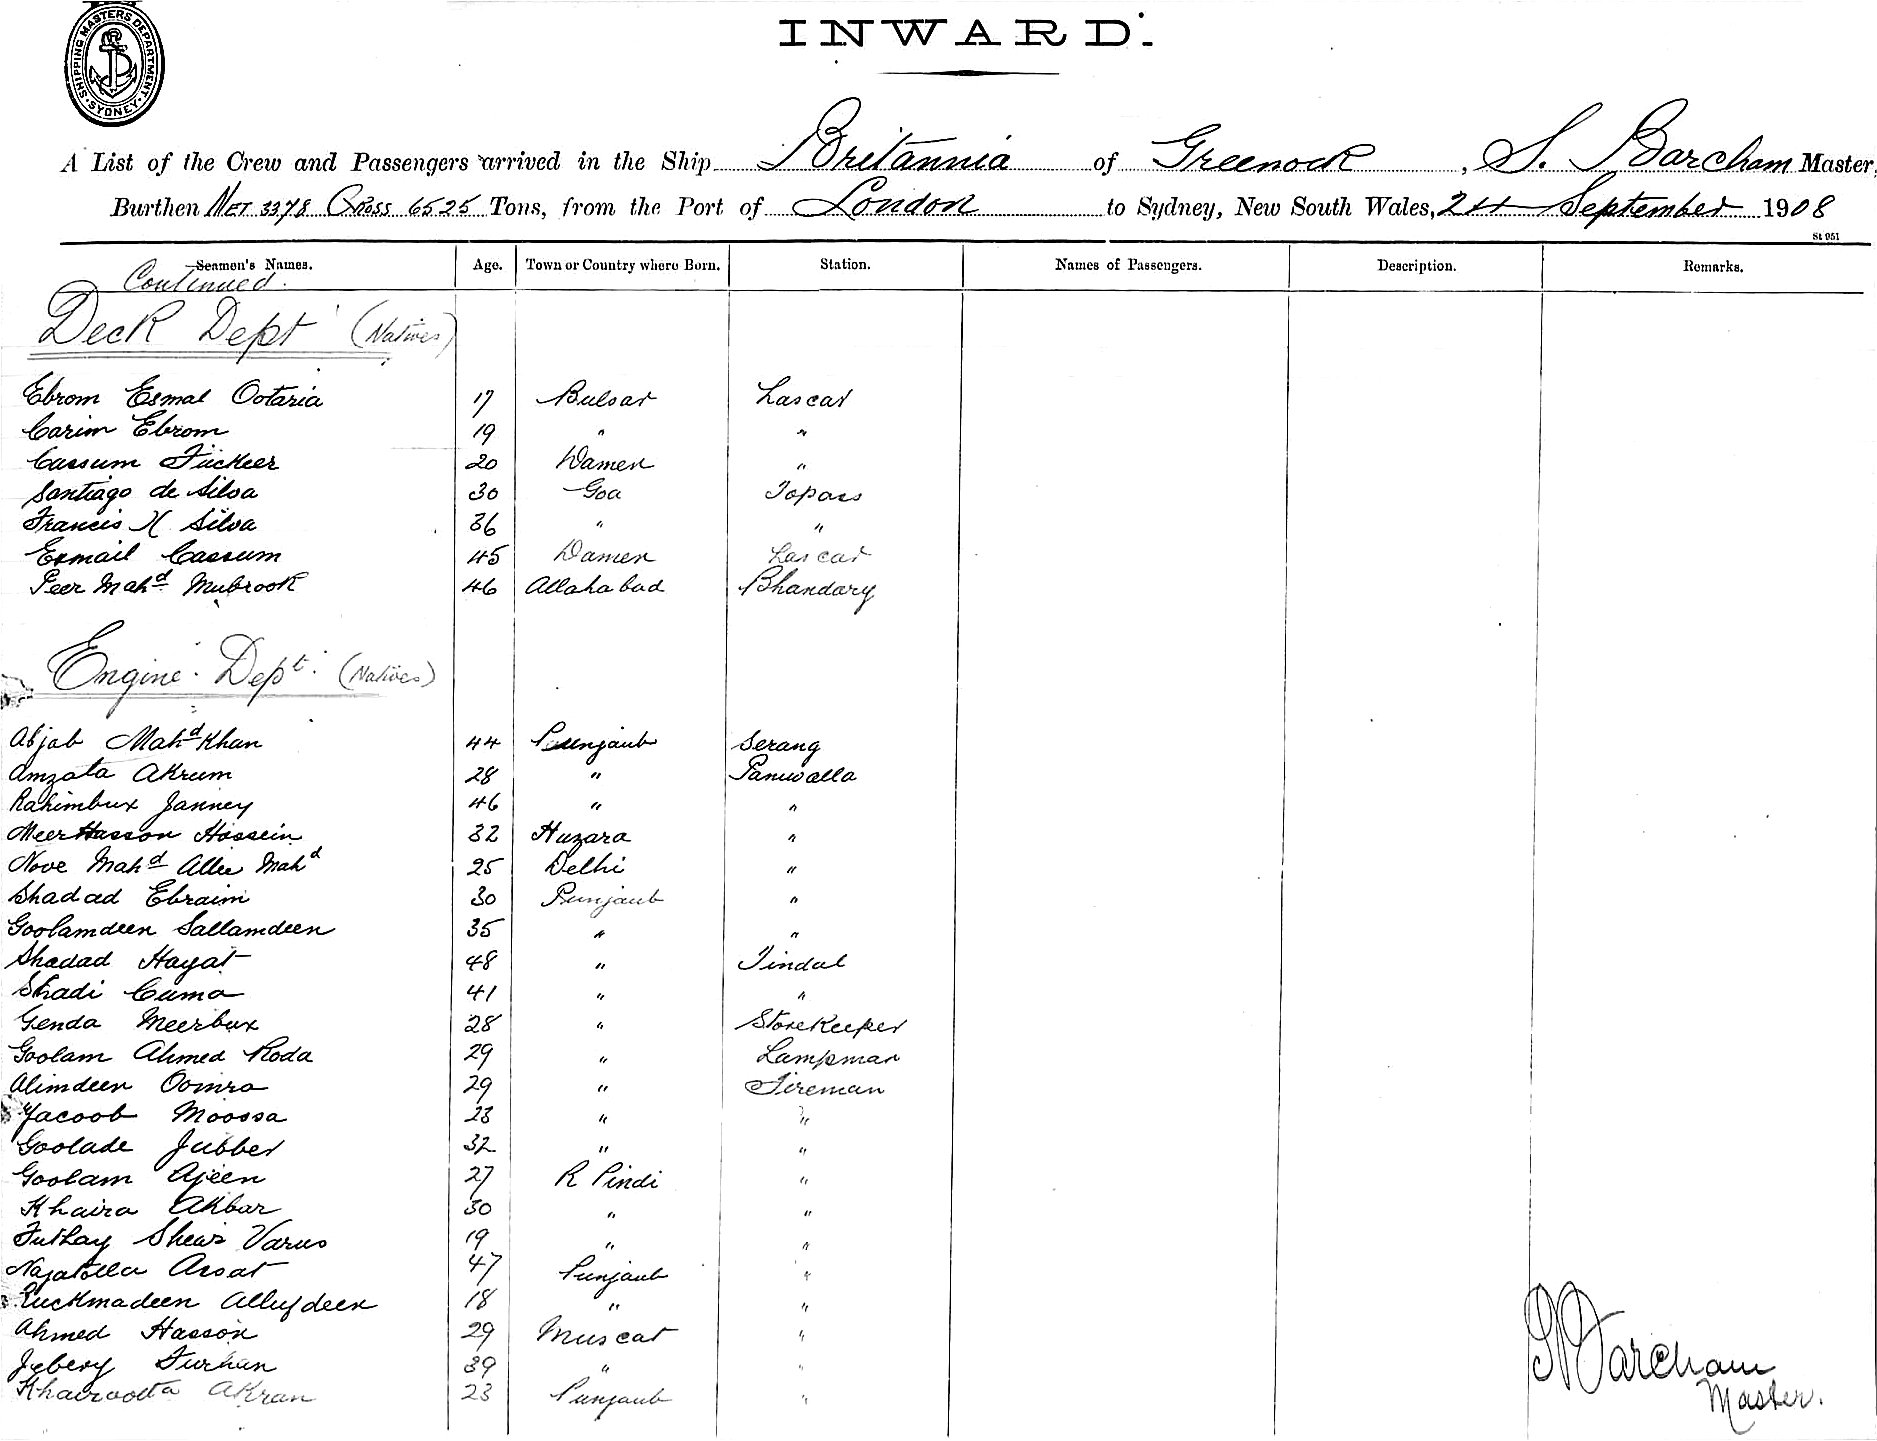 SHIPPING MASTERS DEPARTMENT. SYDNEY.
INWARD.
A List of the Crew and Passengers arrived in the Ship Britannia of Greenock, S. Barcham Master,
Burthen Net 3378 Gross 6525 Tons, from the Port of London to Sydney, New South Wales, 24 September 1908
St 951
Seamen's Names. Age. Town or Country where Born. Station. Names of Passengers. Description. Remarks.
Continued.
Deck Dept (Natives)
Ebrom Esmal Ootaria 17 Bulsar Lascar
Carim Ebrom 19 " "
Cassum Fuckeer 20 Damen "
Santiago de Silva 30 Goa Topass
Francis X Silva 36 " "
Esmail Cassum 45 Damen Lascar
Peer Mahd Mubrook 46 Allahabad Bhandary
Engine Dept. (Natives)
Abjab Mahd Khan 44 Punjaub Serang
Amzata Akrum 28 " Paniwalla
Rahimbux Janney 46 " "
Meer Hasson Hossein 32 Huzara "
Nove Mahd Allee Mahd 25 Delhi "
Shadad Ebraim 30 Punjaub "
Goolamdeen Sallamdeen 35 " "
Shadad Hayat 48 " Tindal
Shadi Cuma 41 " "
Genda Meerbux 28 " Storekeeper
Goolam Ahmed Roda 29 " Lampman
Alimdeen Oomra 29 " Fireman
Yacoob Moossa 23 " "
Goolade Jubber 32 " "
Goolam Ajeen 27 R Pindi "
Khaira Akbar 30 " "
Futhay Shear Varus 19 " "
Najatolla Arsat 47 Punjaub "
Ruckmadeen Allufdeen 18 " "
Ahmed Hasson 29 Muscat "
Jebery Furhan 39 " "
Khairootta Akran 23 Punjaub "
S Barcham
Master.